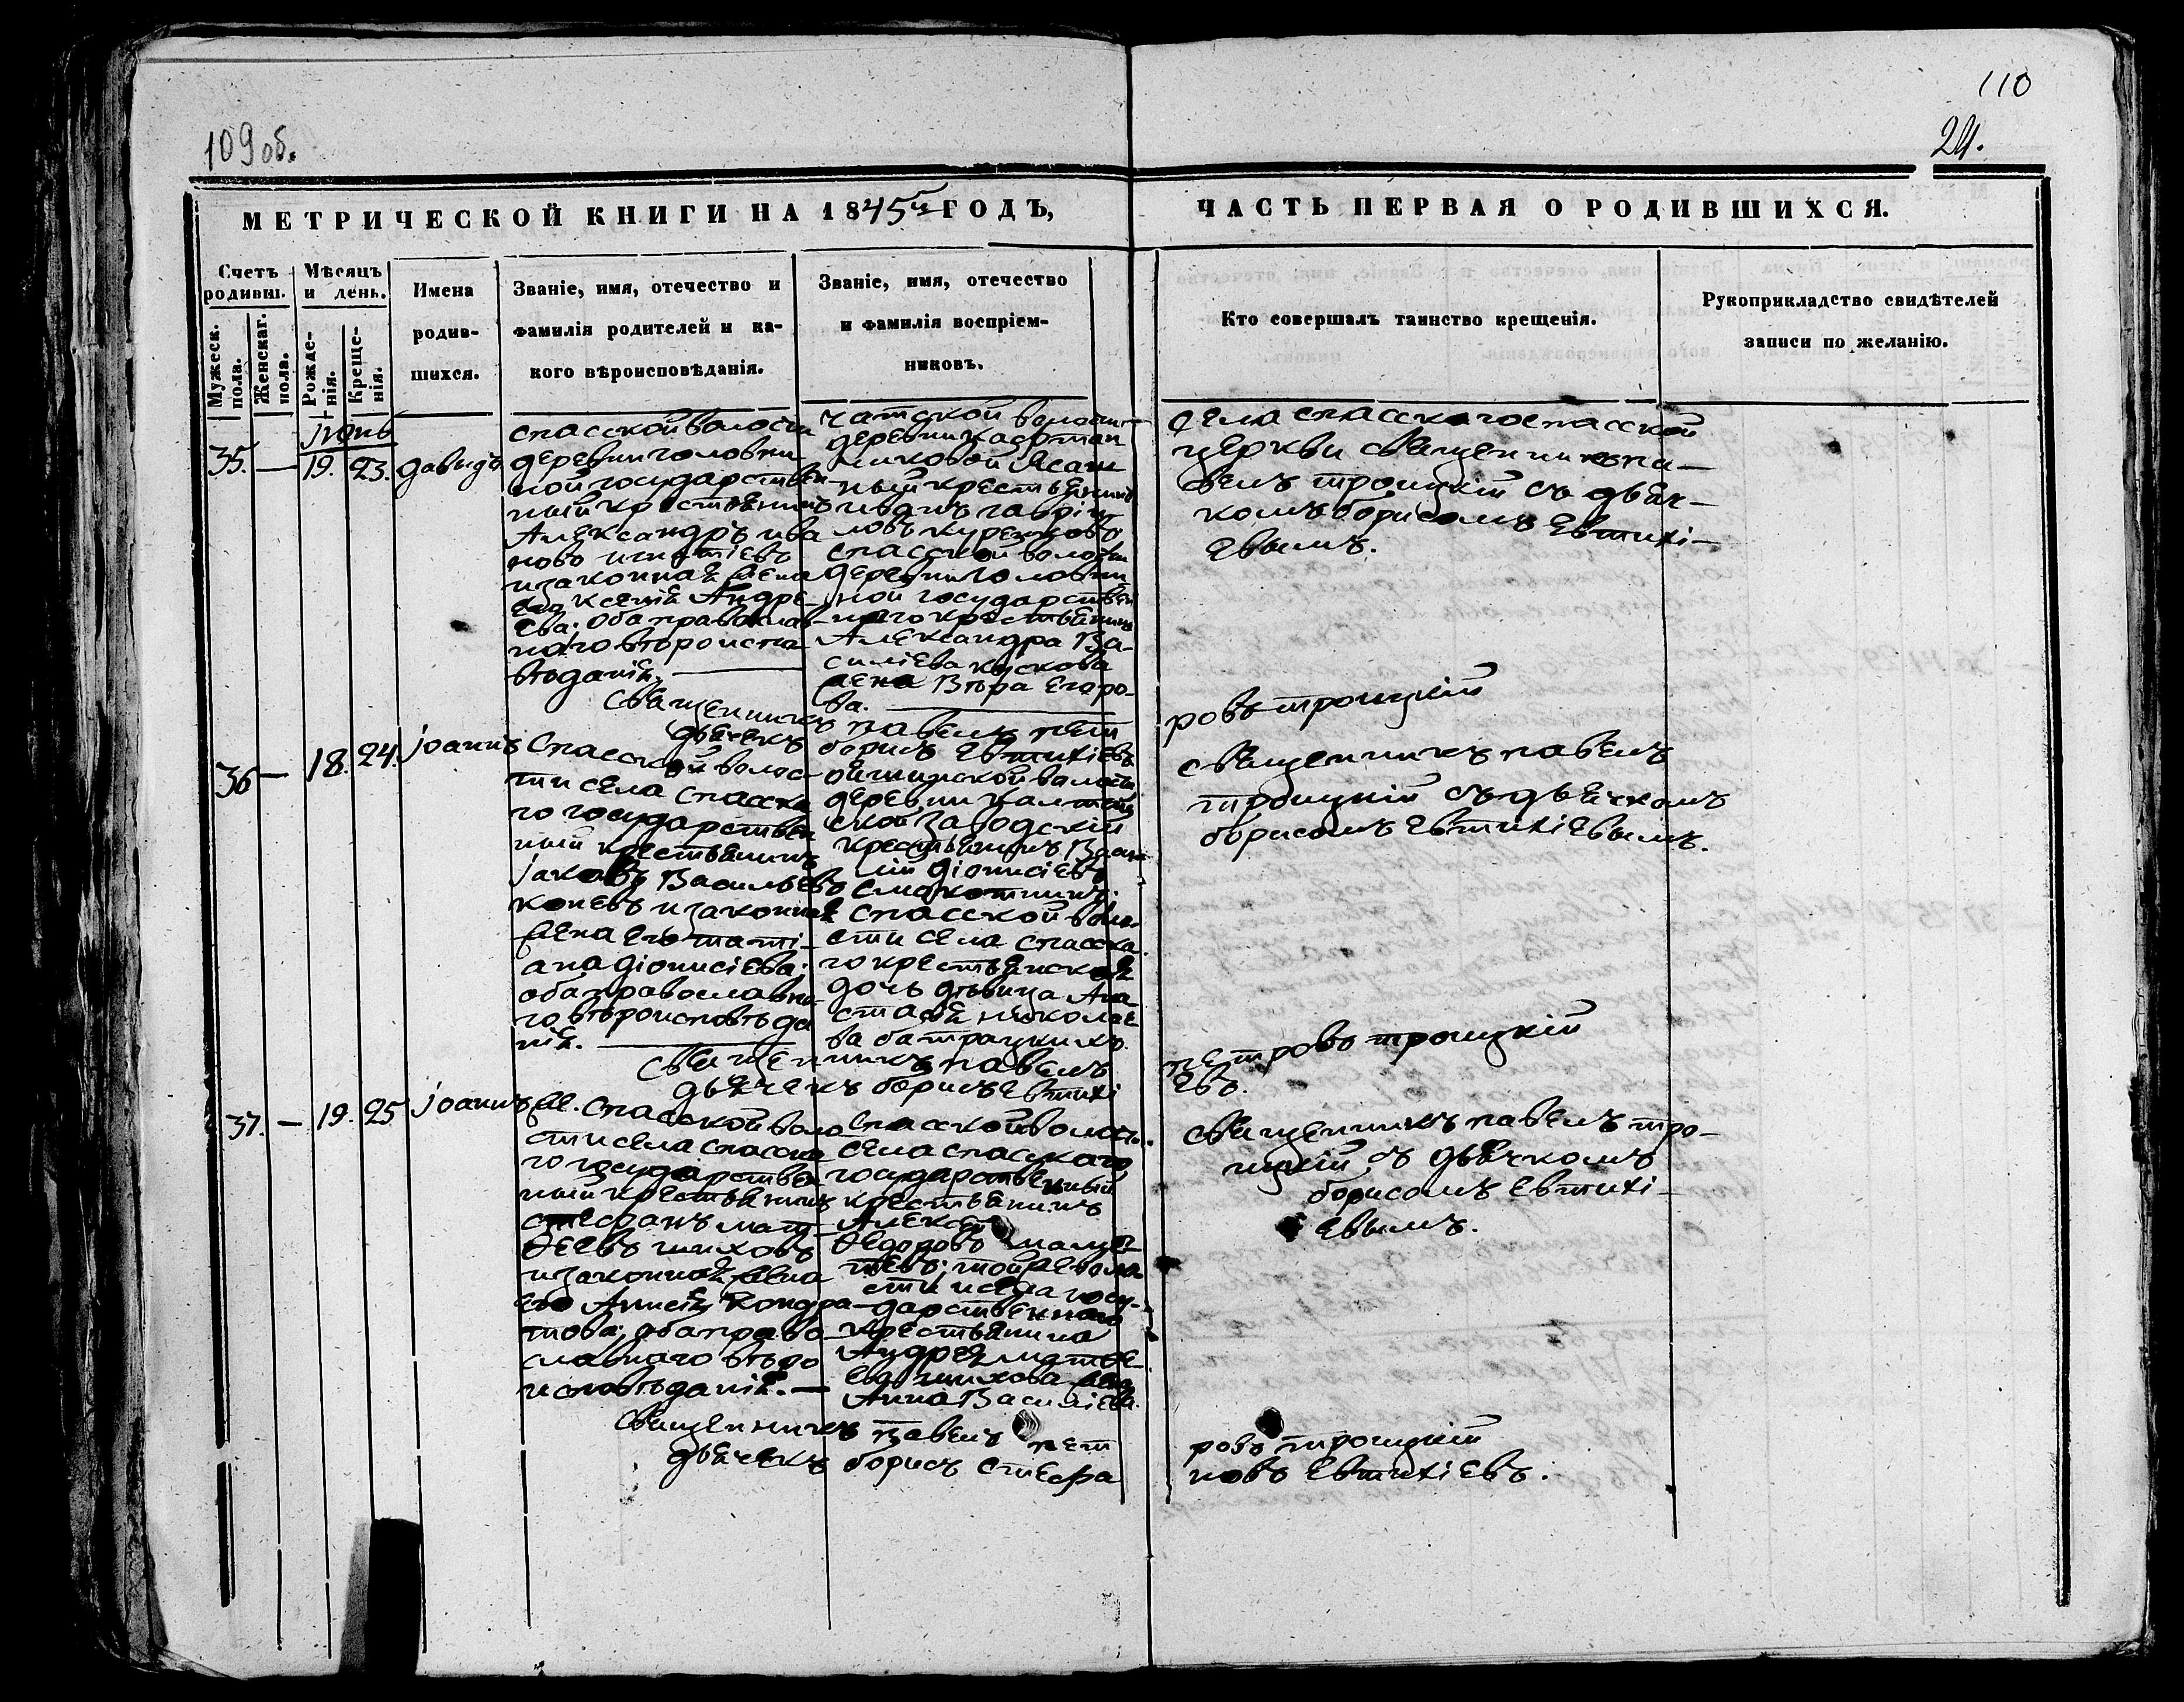 110
109 об.
24.
МЕТРИЧЕСКОЙ КНИГИ НА 1845й ГОДЪ,
ЧАСТЬ ПЕРВАЯ О РОДИВШИХСЯ.
Счетъ родивш.
Мужеск. пола.
Женскаг. пола.
Мѣсяцъ и день.
Рожденія.
Крещенія.
Имена
родив-
шихся.
Званіе, имя, отечество и
фамилія родителей и ка-
кого вѣроисповѣданія.
Званіе, имя, отечество
и фамилія воспріем-
никовъ.
Кто совершалъ таинство крещенія.
Рукоприкладство свидѣтелей
записи по желанію.
Іюнь
35. — 19. 23. Давидъ
спасской волости
деревни головни-
ной государствен-
ный крестьянинъ
Александръ ива
новъ игнатіевъ
и законная жена
его Ксенія Андре-
ева; оба православ-
наго вѣроиспо-
вѣданія. —
чатской волости
деревни
ясаш
ный крестьянинъ
иванъ гаврiи
ловъ куренковъ
спасской волости
деревни головни
ной государствен
наго крестьянина
Александра Ва-
силіева кускова
жена Вѣра Егоро-
ва.
села спасскаго спасской
церкви священникъ па-
велъ троицкій съ дьяч-
комъ борисомъ Евтихі-
евымъ.
Священникъ павелъ пет ровъ троицкій
дьячекъ борисъ Евтихіевъ
36 — 18. 24. Іоаннъ
Спасской волос-
ти села спасска
го государствен
ный крестьянинъ
Іаковъ Васильевъ
коневъ и законная
жена его тати-
ана діонисіева;
оба православна-
го вѣроисповѣда
нія. —
волости
деревни
ской заводскій
крестьянинъ Васи
лій діонисіевъ
спасской воло-
сти села спасска
го крестьянская
дочь дѣвица Ана
стасія николае
ва батрацкихъ.
священникъ павелъ
троицкій съ дьячкомъ
борисомъ Евтихіевымъ.
священникъ павелъ петровъ троицкій
дьячекъ борисъ Евтихі евъ.
37. — 19. 25. Іоаннъ же.
спасской воло-
сти села спасска
го государствен-
ный крестьянинъ
стефанъ мат-
ѳеевъ шиховъ
и законная жена
его Анисія Кондра-
това; оба право-
славнаго вѣро
исповѣданія. —
Спасской волости
села спасскаго
государственный
крестьянинъ
Алексѣй
Ѳедоровъ
той же воло
сти и села госу-
дарственнаго
крестьянина
Андрея матѳе
ева шихова жена
Анна Василіева.
священникъ павелъ тро-
ицкій съ дьячкомъ
борисомъ Евтихі-
евымъ.
Священникъ Павелъ пет ровъ троицкій
дьячекъ борисъ стефа новъ Евтихіевъ.